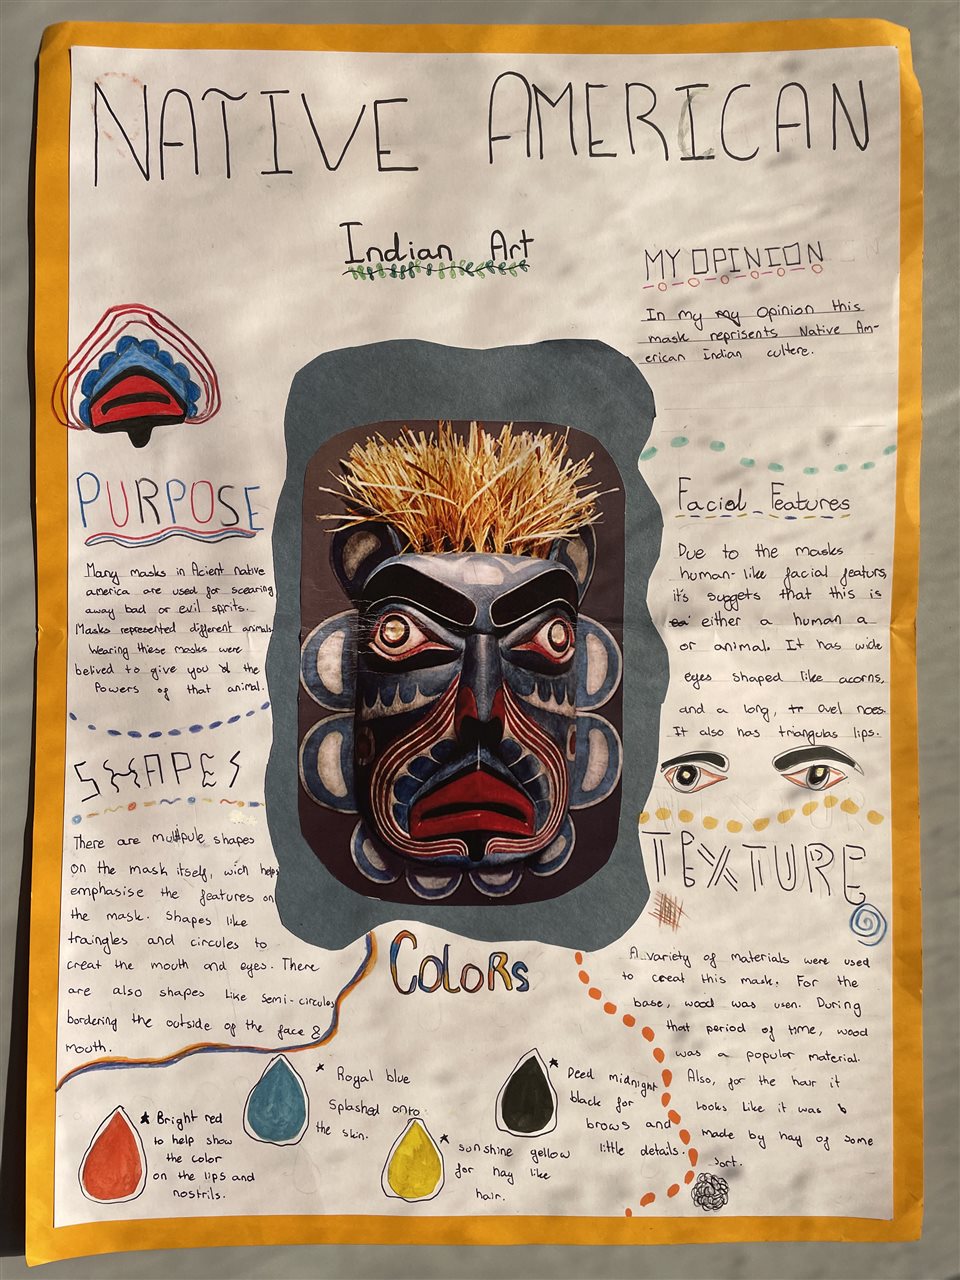 NATIVE AMERICAN
Indian Art
MY OPINION
In my my opinion this
mask reprisents Native Am-
erican Indian cultere.
PURPOSE
Many masks in Acient native
america are used for scearing
away bad or evil sprits.
Masks represented different animals
Wearing these masks were
belived to give you the
Powers of that animal.
SHAPES
There are multipule shapes
on the mask itself, wich helps
emphasise the features on
the mask. Shapes like
traingles and circules to
creat the mouth and eyes. There
are also shapes like semi-circules
bordering the outside of the face &
mouth.
Facial Features
Due to the masks
human-like facial featurs,
it's suggets that this is
either a human a
or animal. It has wide
eyes shaped like acorns,
and a long, oval noes.
It also has triangulas lips.
TEXTURE
A variety of materials were used
to creat this mask. For the
base, wood was usen. During
that period of time, wood
was a popular material.
Also, for the hair it
looks like it was
made by hay of some
sort.
COLORS
* Bright red
to help show
the color
on the lips and
nostrils.
* Royal blue
Splashed onto
the skin.
* sunshine yellow
for hay like
hair.
* Deed midnight
black for
brows and
little details.